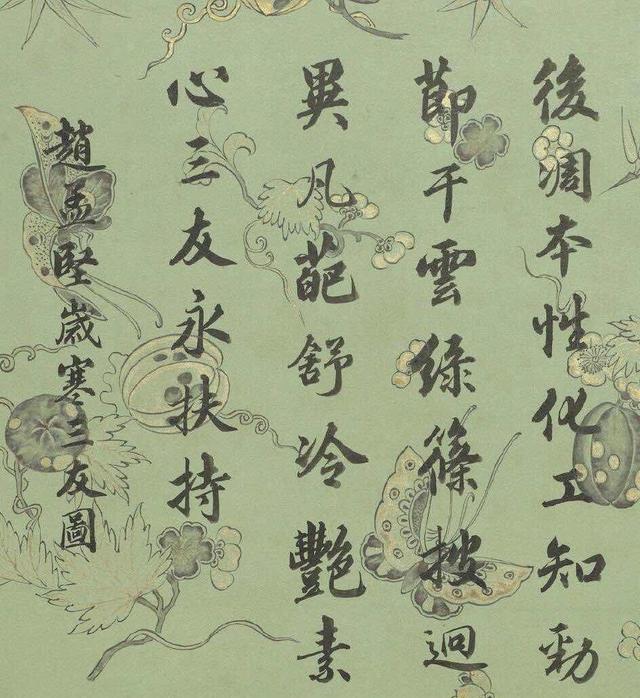 後凋本性化工知勁
節干雲綠篠披迥
異凡葩舒冷艷素
心三友永扶持
趙孟堅歲寒三友圖